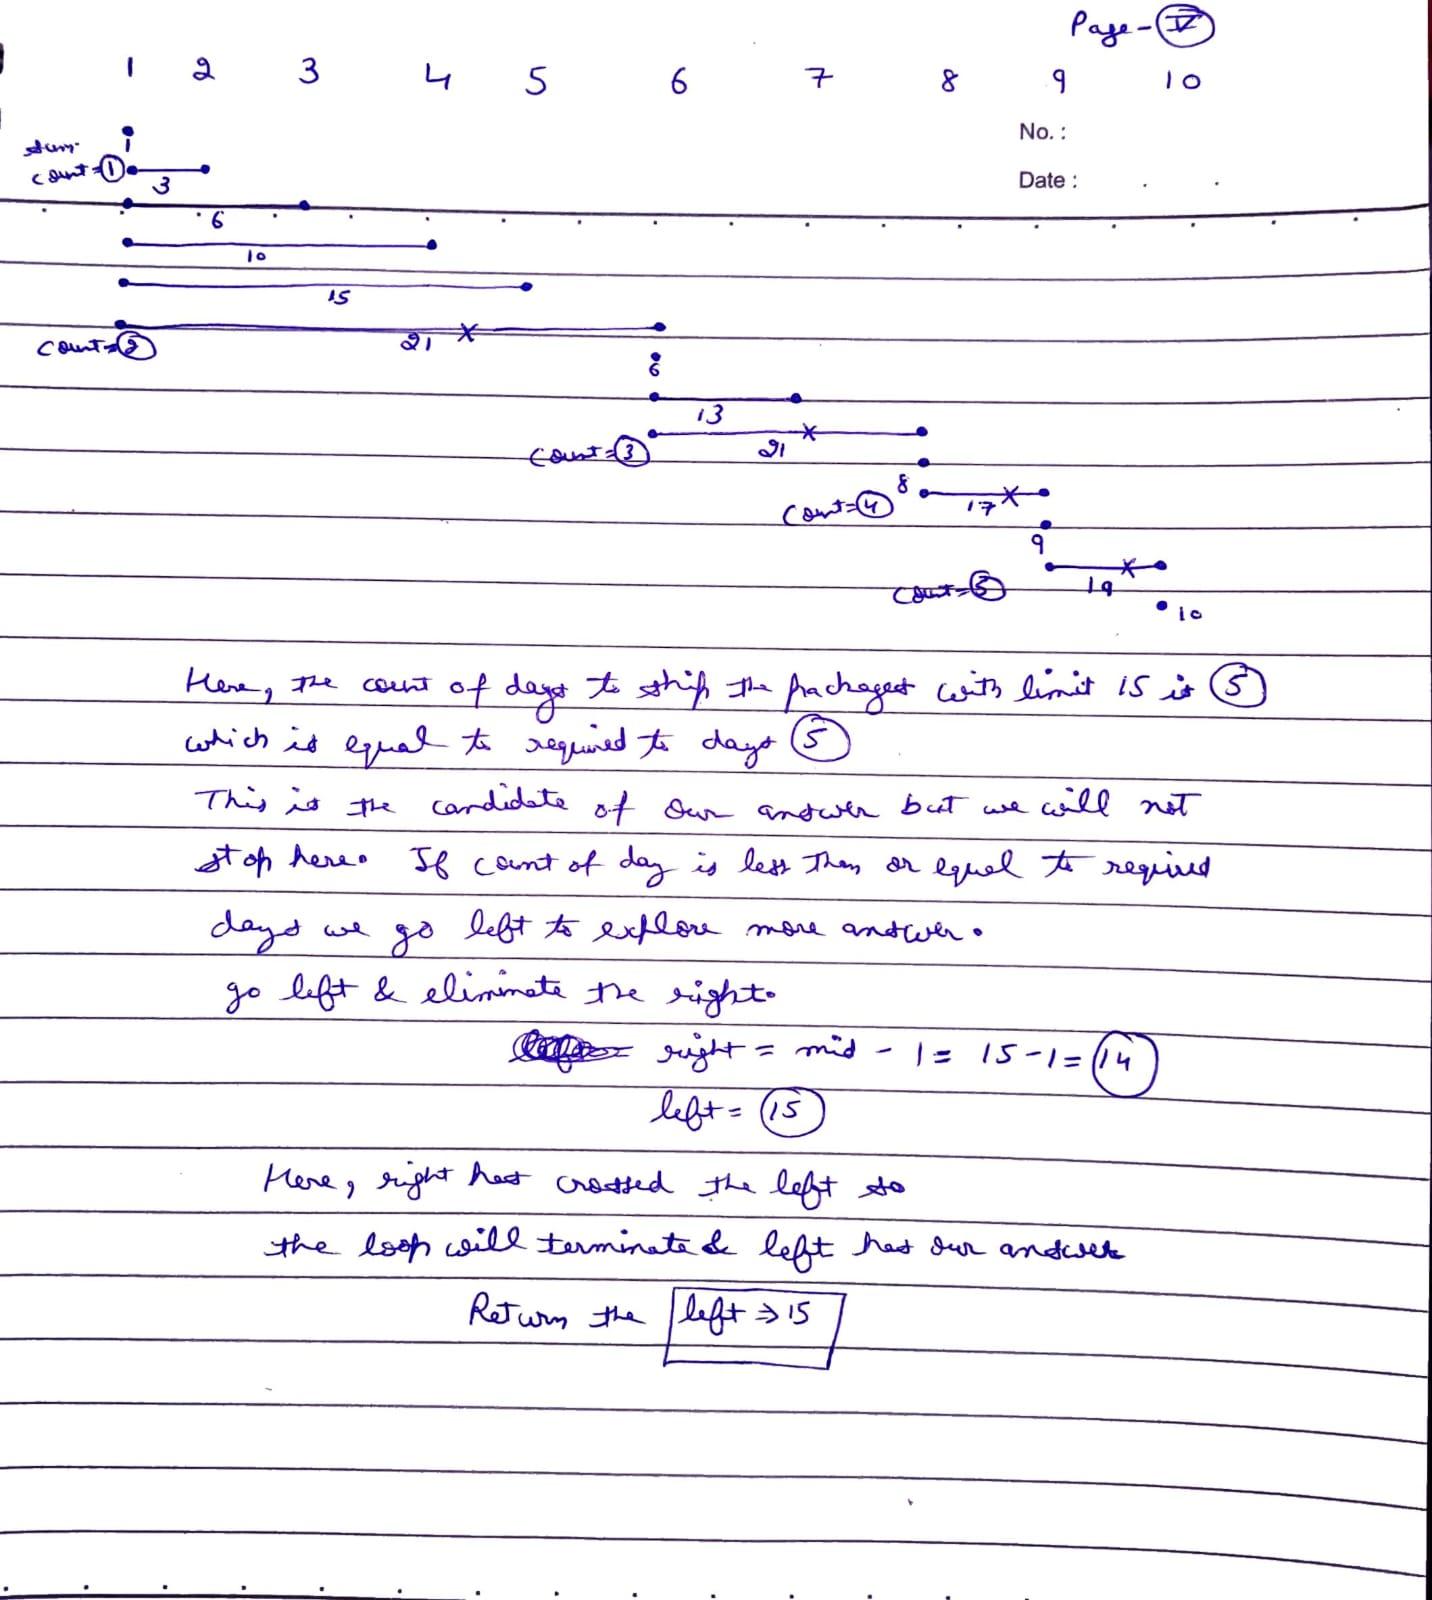 Page - V
1 2 3 4 5 6 7 8 9 10
No. :
Date :
sum
1
count=1
3
6
10
15
21 x
count=2
6
13
21 x
count=3
8
17 x
count=4
9
19 x
count=5
10
Here, the count of days to ship the packages with limit 15 is 5
which is equal to required to days 5
This is the candidate of our answer but we will not
stop here. If count of day is less than or equal to required
days we go left to explore more answer.
go left & eliminate the right.
right = mid - 1 = 15 - 1 = 14
left = 15
Here, right has crossed the left so
the loop will terminate & left has our answer
Return the left => 15